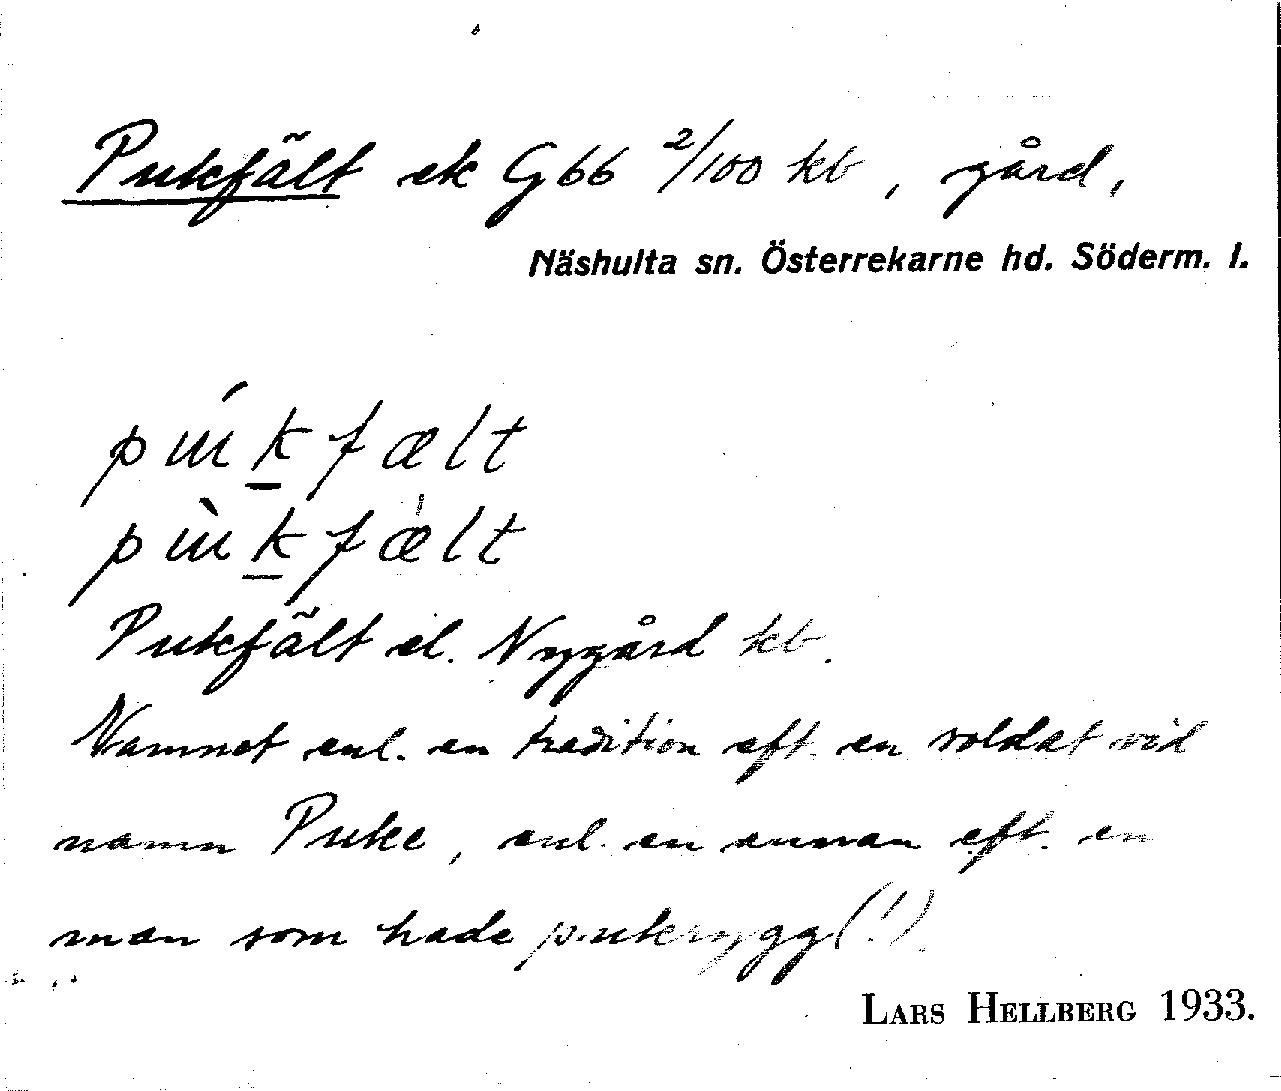 Pukfält ek G66 2/100 kb, gård,
Näshulta sn. Österrekarne hd. Söderm. l.
pú̈kfælt
pǜkfæ̀lt
Pukfält el. Nygård kb.
Namnet enl. en tradition eft. en soldat vid
namn Puke, enl. en annan eft. en
man som hade pukrygg(!).
LARS HELLBERG 1933.